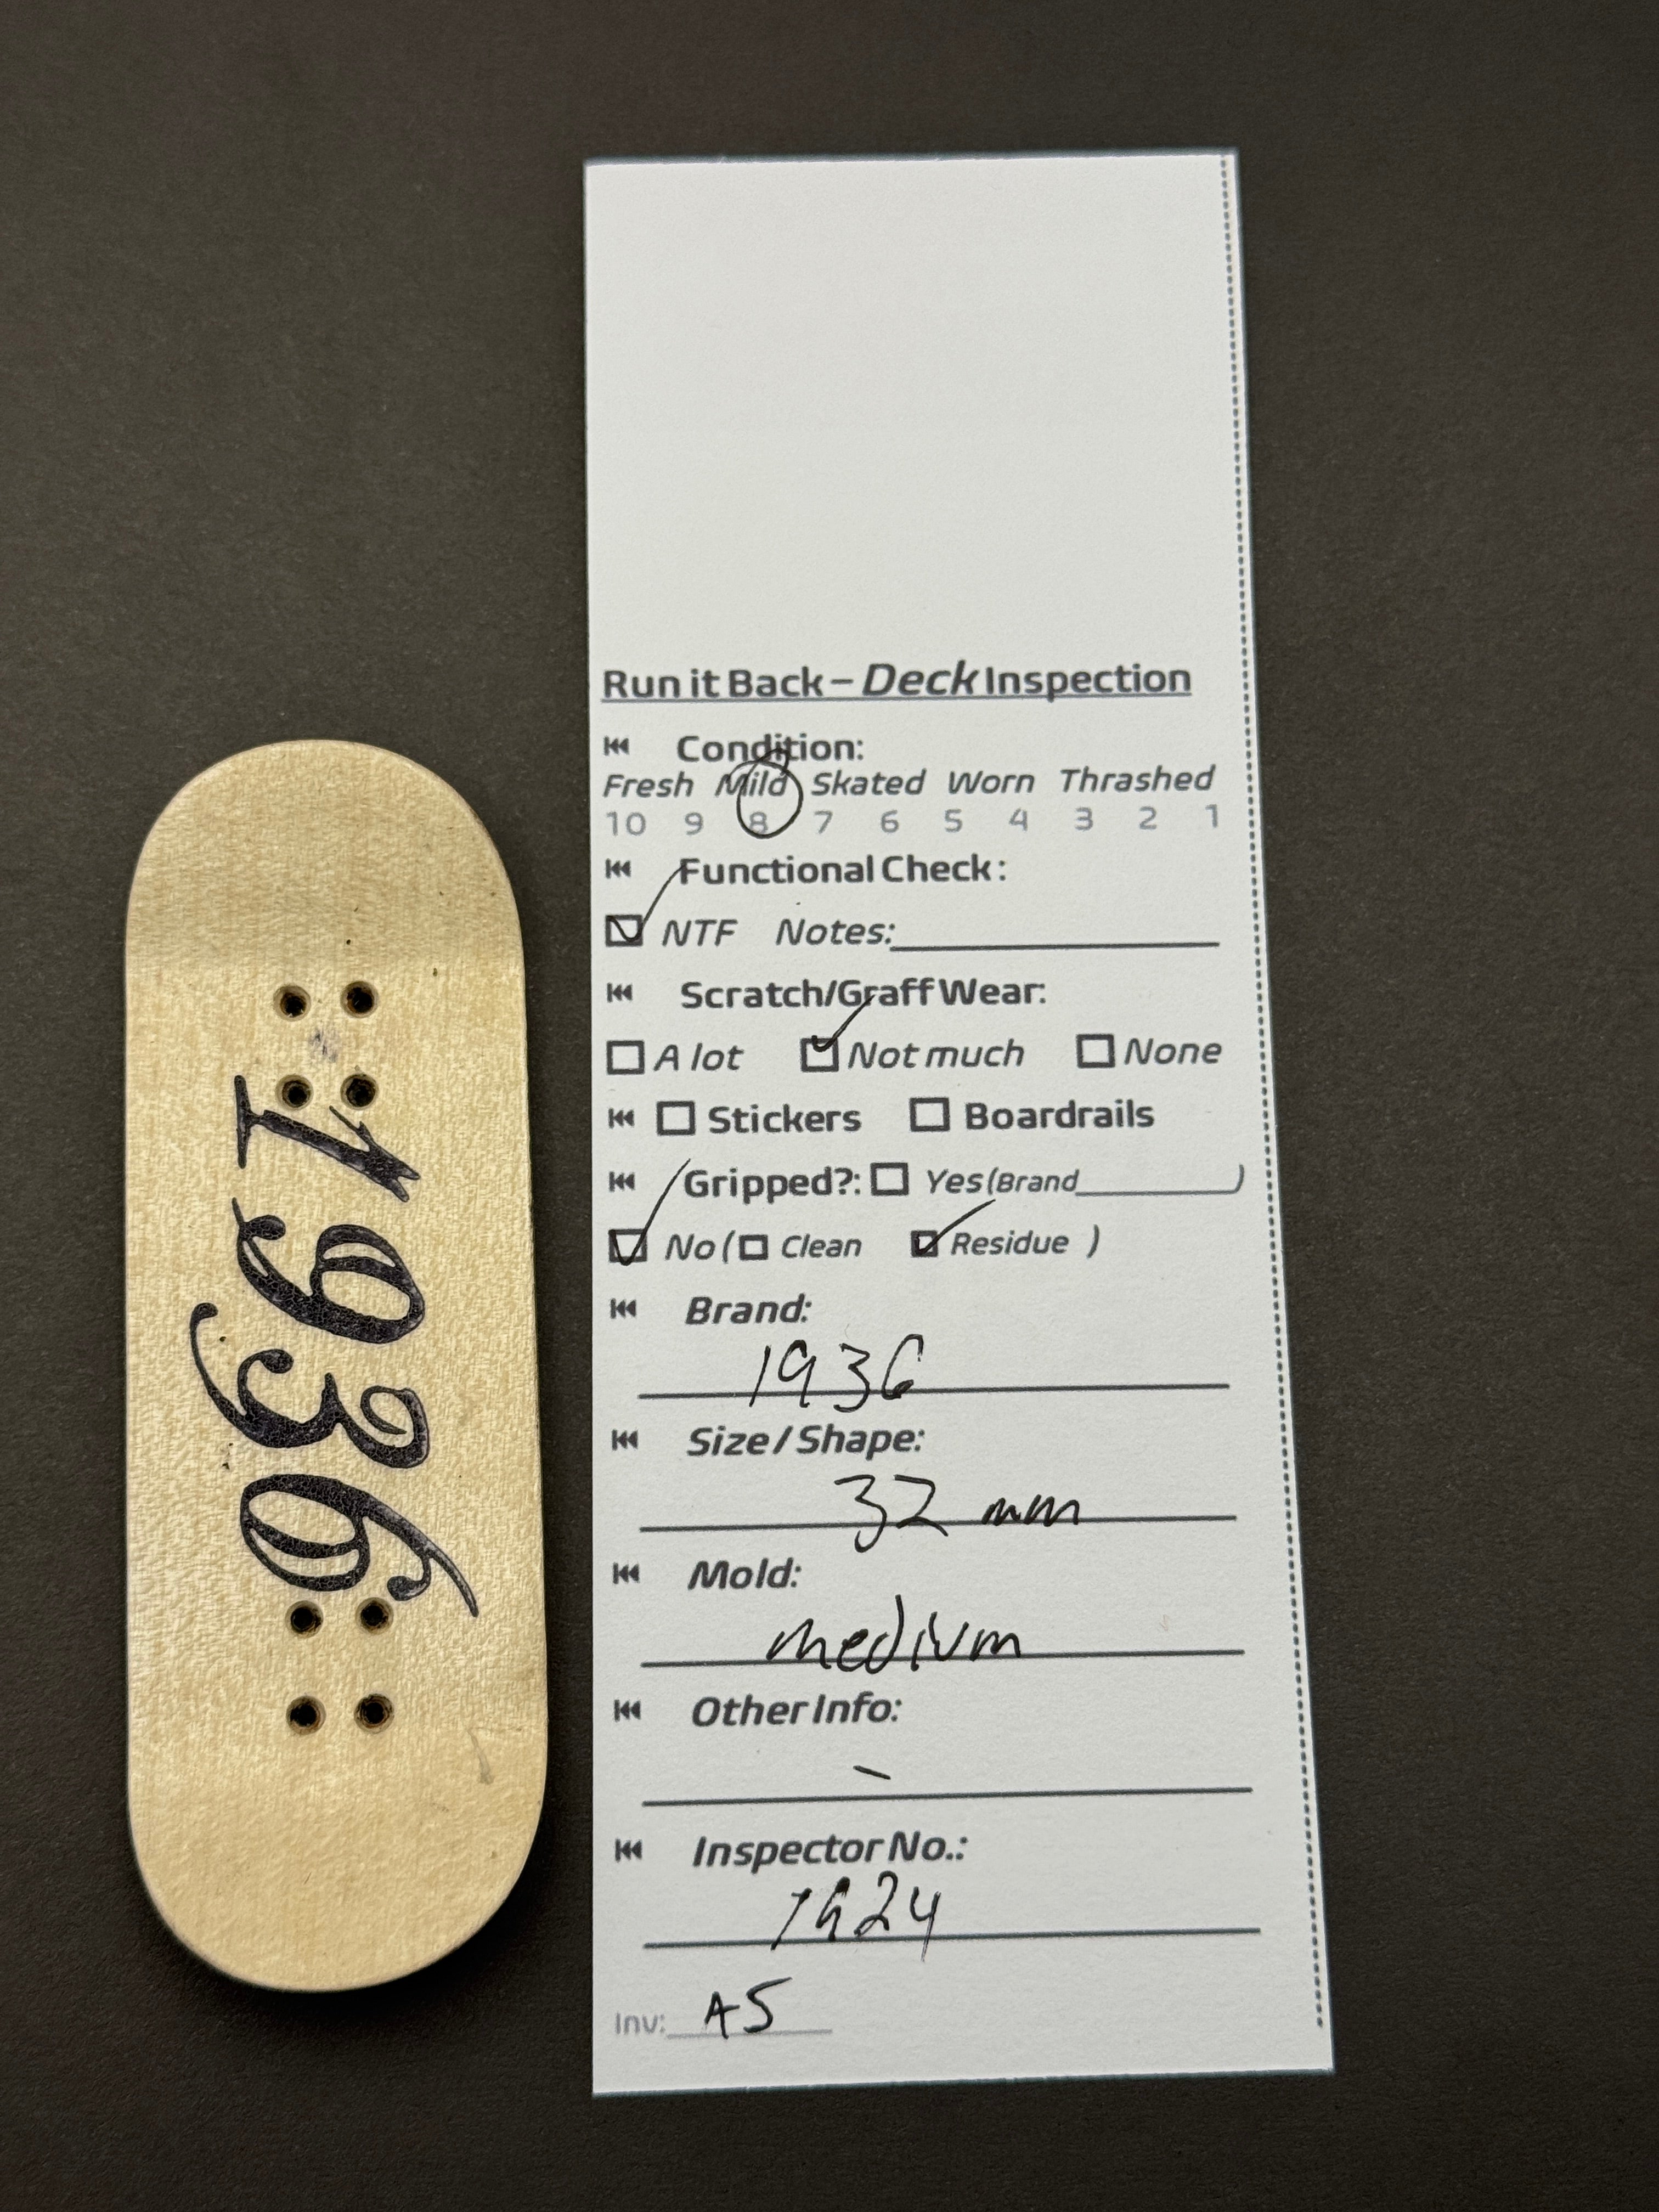 1936
Run it Back – Deck Inspection
Condition:
Fresh Mild Skated Worn Thrashed
10 9 8 7 6 5 4 3 2 1
Functional Check:
NTF Notes:
Scratch/Graff Wear:
A lot Not much None
Stickers Boardrails
Gripped?: Yes (Brand )
No ( Clean Residue )
Brand:
1936
Size / Shape:
32 mm
Mold:
medium
Other Info:
–
Inspector No.:
1924
Inv: A5